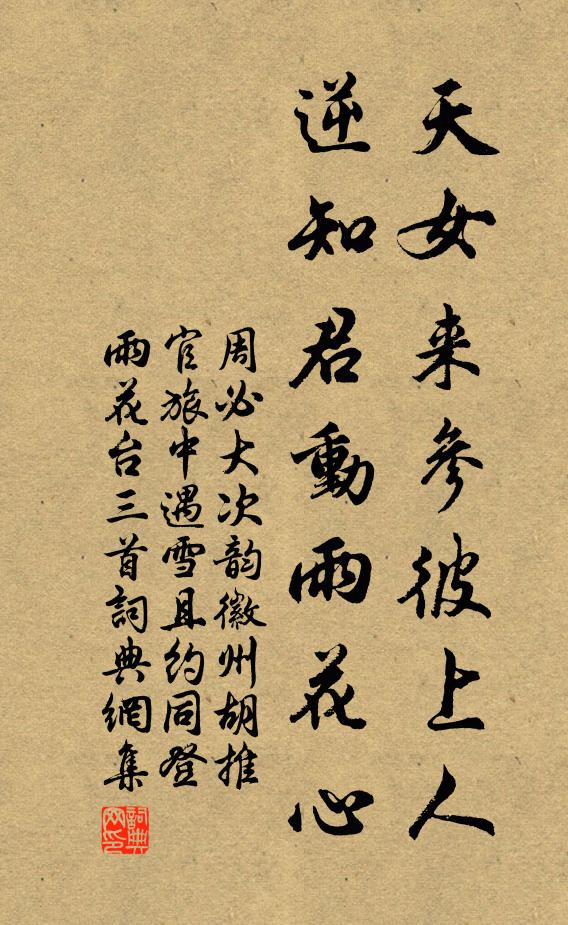 天女来參彼上人
逆知君動雨花心
周必大次韵徽州胡推
官旅中遇雪且約同登
雨花台三首詞典網集
詞典
网印